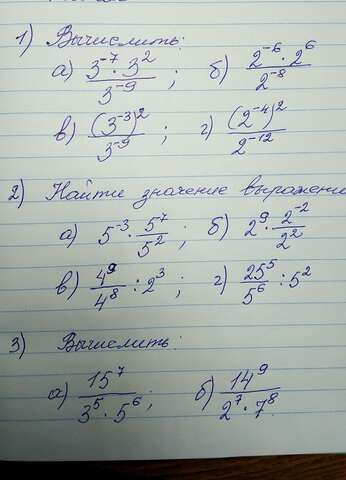 1) Вычислить:
а) 3⁻⁷ · 3² / 3⁻⁹ ; б) 2⁻⁶ · 2⁶ / 2⁻⁸
в) (3⁻³)² / 3⁻⁹ ; г) (2⁻⁴)² / 2⁻¹²
2) Найти значение выражени
а) 5⁻³ · 5⁷ / 5² ; б) 2⁹ · 2⁻² / 2²
в) 4⁹ / 4⁸ : 2³ ; г) 25⁵ / 5⁶ : 5²
3) Вычислить:
а) 15⁷ / 3⁵ · 5⁶ ; б) 14⁹ / 2⁷ · 7⁸